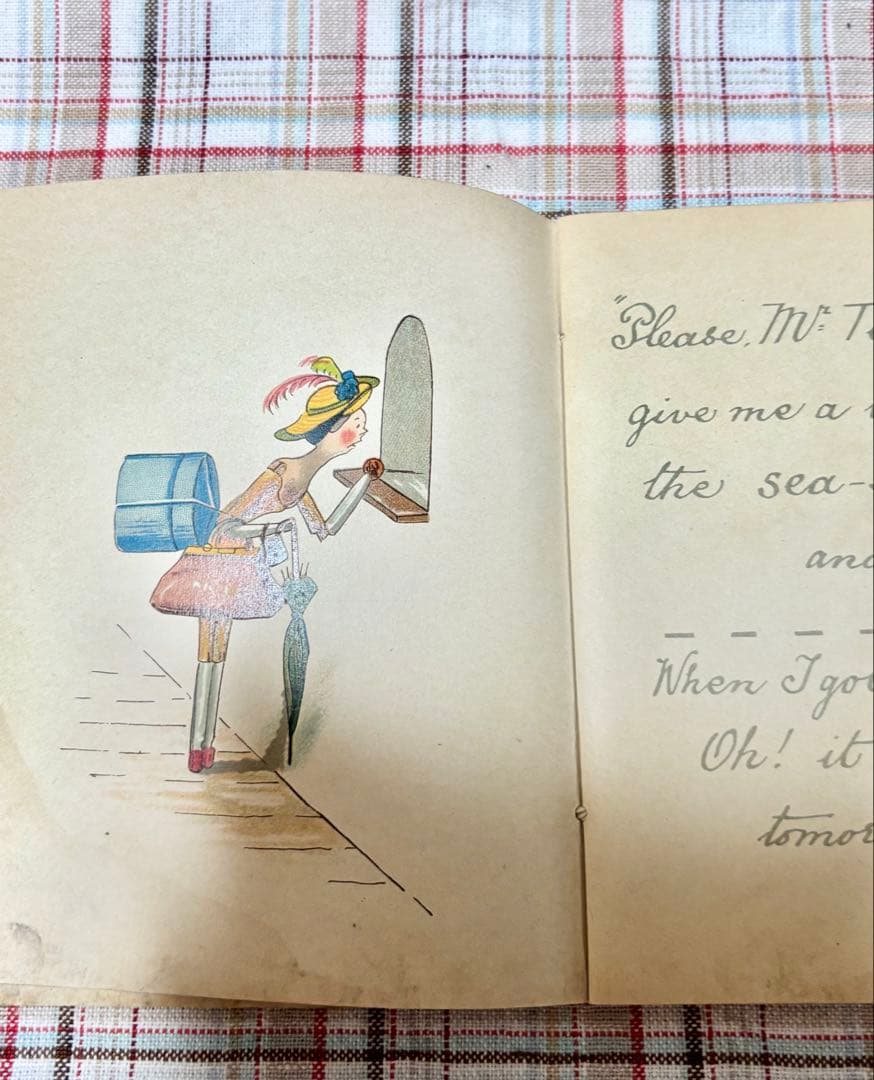 "Please, Mr.
give me a
the sea-
and
— — — —
When I go
Oh! it
tomor